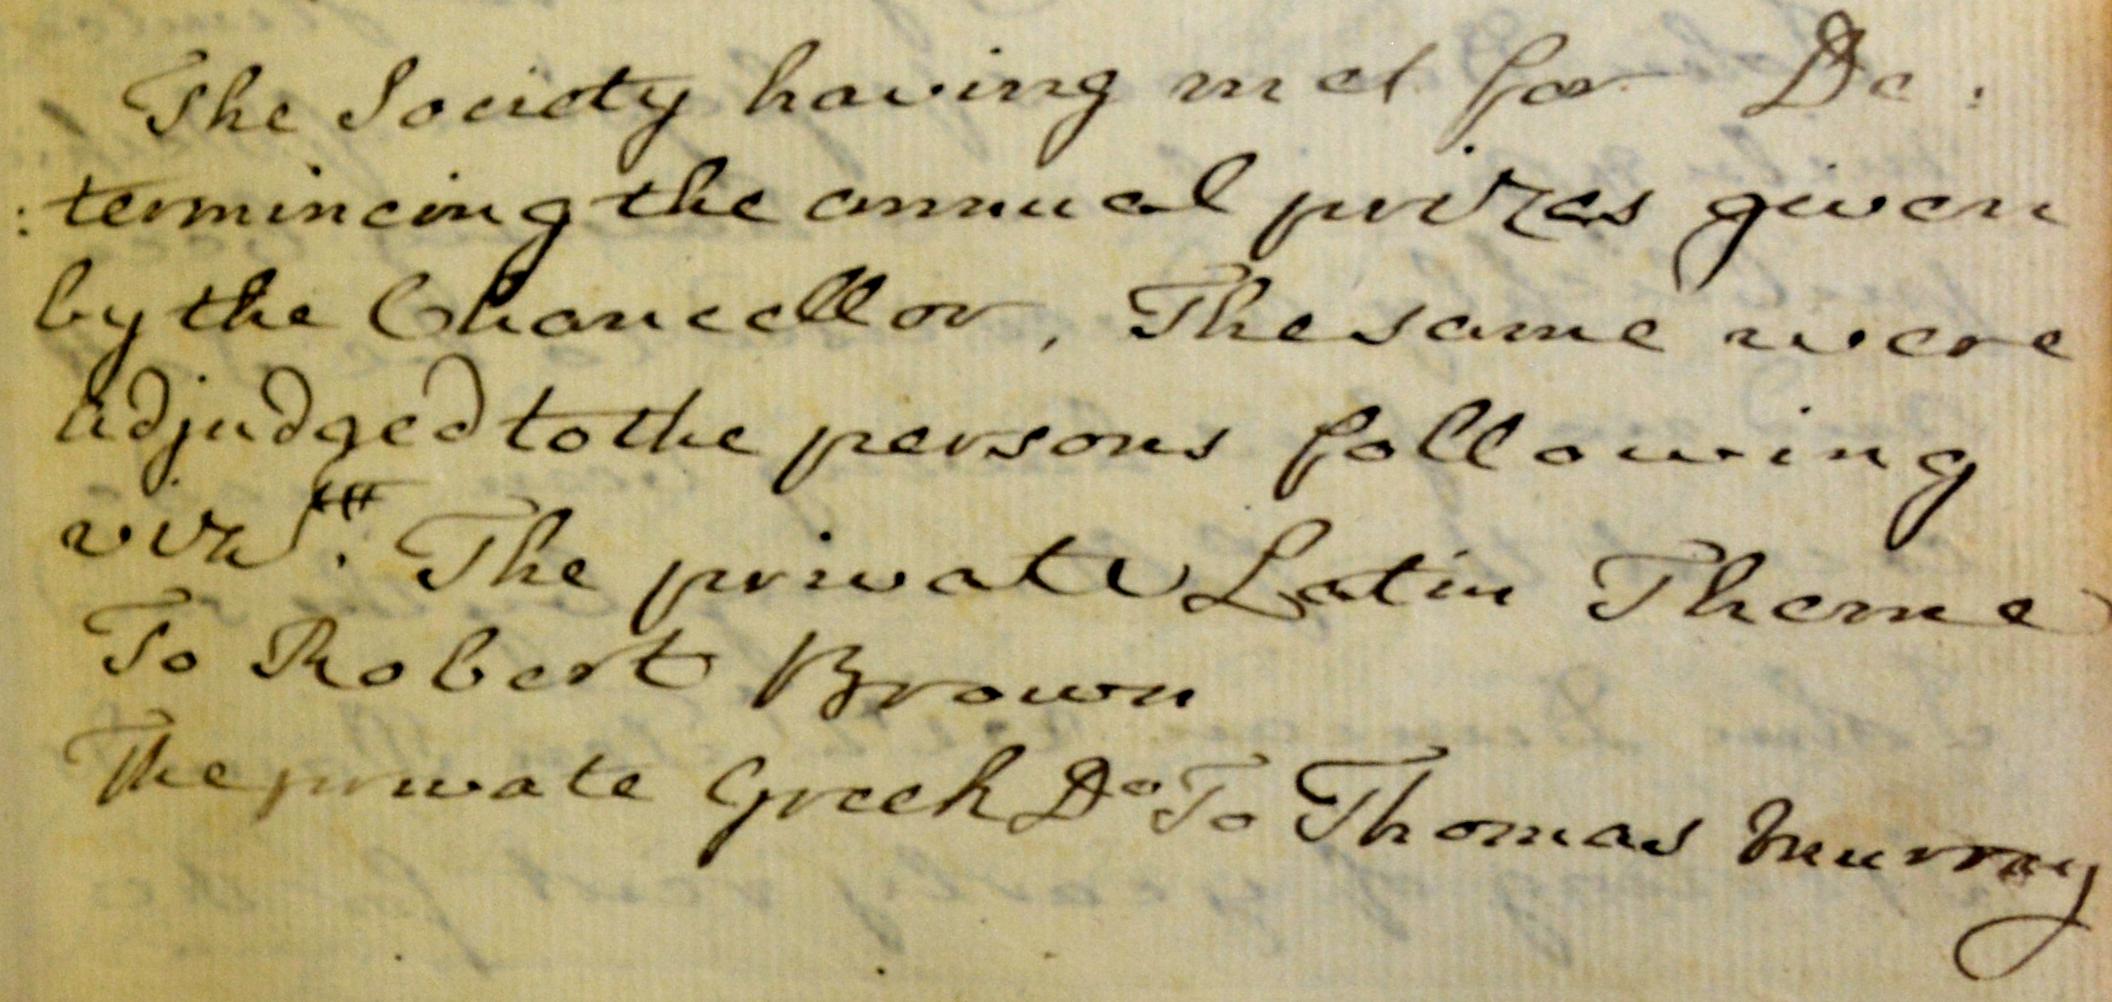 The Society having met for De:
:termineing the annual prizes given
by the Chancellor, The same were
adjudged to the persons following
vizt. The private Latin Theme
To Robert Brown
The private Greek Do To Thomas Murray